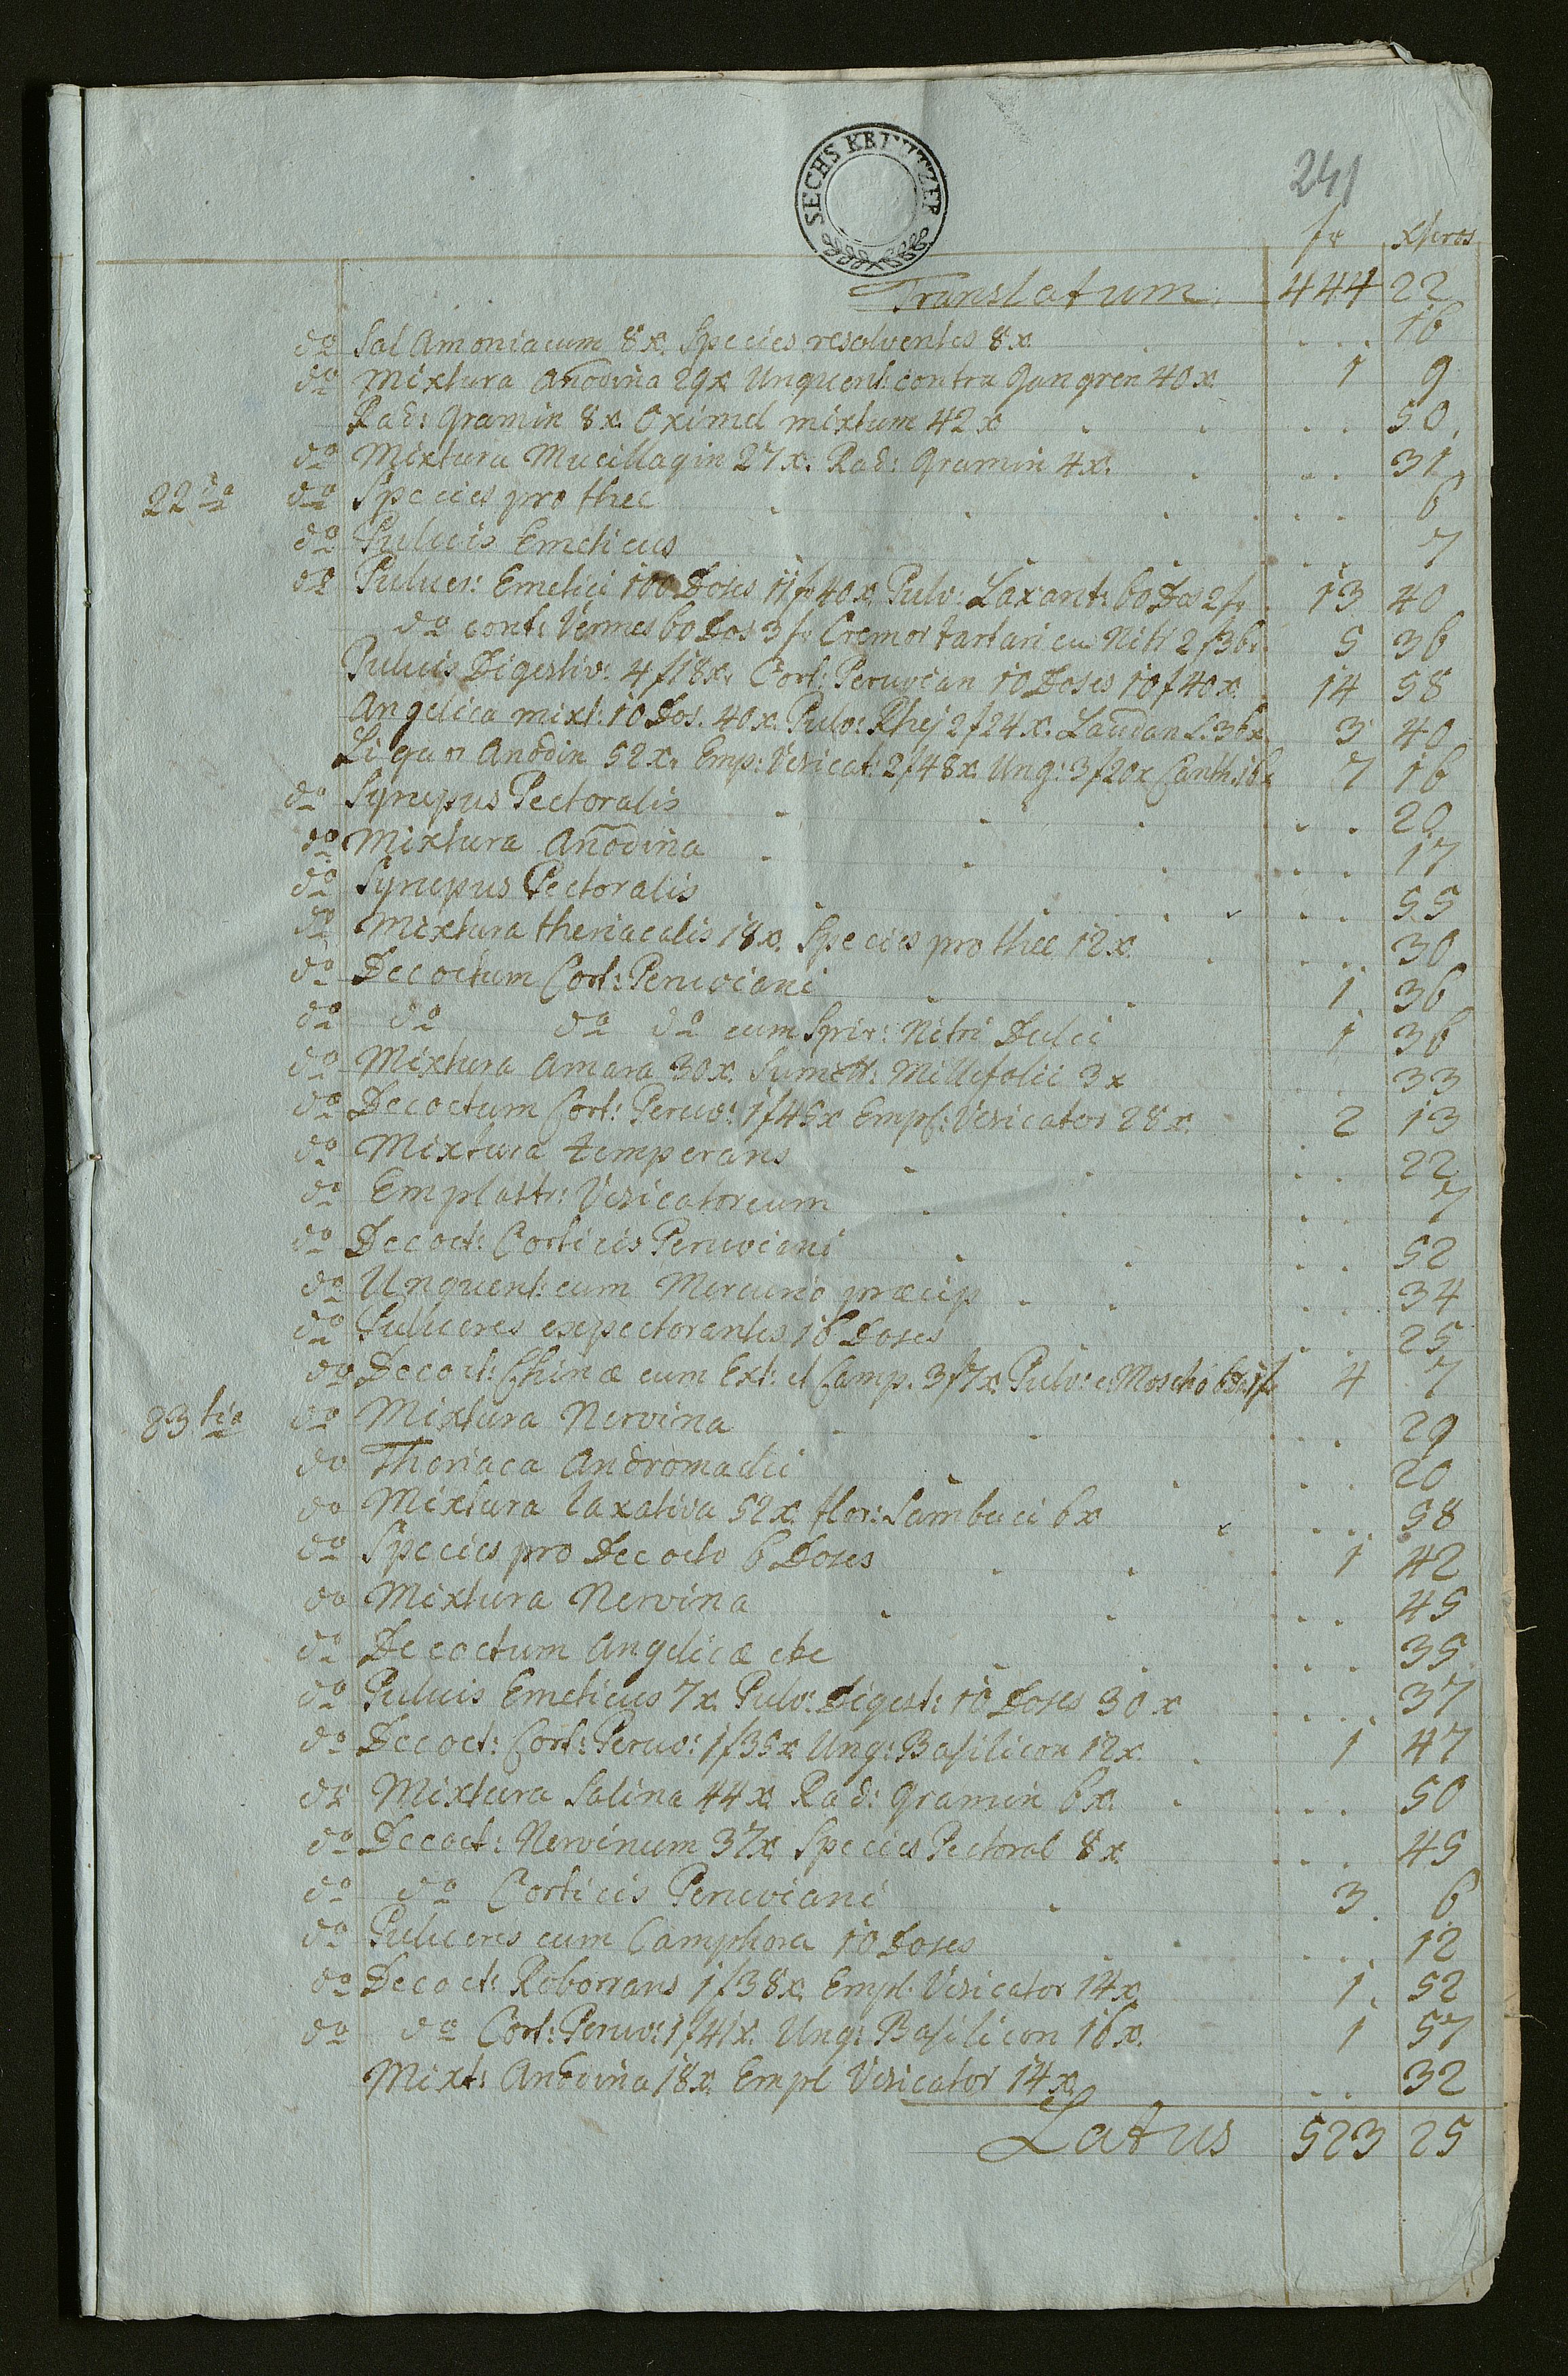 SECHS KREUTZER
241
fr xferos
Translatum. 444 22
do Sal Amoniacum 8x. Species resolventes 8x . . . . 16
do Mixtura Anodina 29x Unguent: contra Gangren 40x. 1 9
Rad: Gramin 8x. Oximel mixtum 42x . . . . 50.
do Mixtura Mucillagin 27x. Rad: Gramin 4x. . . . 31
22da do Species pro thee . . . . 6
do Pulvis Emeticus . . . . 7
do Pulver: Emetici 100 Doses 11fr 40x. Pulv: Laxant: 60 Dos 2fr 13 40
do cont: Vermes 60 Dos 3fr Cremor tartari cu Nitr 2f36x. 5 36
Pulvis Digestiv: 4f18x. Cort: Peruvian 10 Doses 10f40x. 14 58
Angelica mixt: 10 Dos. 40x. Pulv: Rhej 2f24x. Laudan L: 36x 3 40
Liquor Anodin 52x. Emp: Vesicat: 2f48x. Ung: 3f20x Canth: 16x 7 16
do Syrupus Pectoralis . . . . 20
do Mixtura Anodina . . . . 17
do Syrupus Pectoralis . . . . 55
do Mixtura theriacalis 18x. Species pro thee 12x. . . . 30
do Decoctum Cort: Peruviani . . 1 36
do do do do cum Spir: Nitri Dulci 1 36
do Mixtura Amara 30x. Sumitt: Millefolii 3x 33
do Decoctum Cort: Peruv: 1f45x Empl: Vesicator 28x. 2 13
do Mixtura temperans . . . . 22
do Emplastr: Vesicatoreum . . . . 7
do Decoct: Corticis Peruviani . . . . 52
do Unguent: cum Mercurio præcip . . . . 34
do Pulveres expectorantes 16 Doses . . . 25
do Decoct: Chinæ cum Ext: et Camp. 3f7x. Pulv: c: Moscho 6 Dos 1fr 4 7
23tia do Mixtura Nervina . . . . 29
do Theriaca Andromachi . . . . 20
do Mixtura laxativa 52x. flor: Sambuci 6x . . . . 58
do Species pro Decocto 6 Doses . . 1 42
do Mixtura Nervina . . . . 45
do Decoctum Angelicæ etc . . . . 35
do Pulvis Emeticus 7x. Pulv: Digest: 10 Doses 30x . . . 37
do Decoct: Cort: Peruv: 1f35x Ung: Basilicon 12x. 1 47
do Mixtura Salina 44x. Rad: Gramin 6x. . . . . 50
do Decoct: Nervinum 37x. Species Pectoral 8x. . . . 45
do do Corticis Peruviani . 3 6
do Pulveres cum Camphora 10 Doses . . . . 12
do Decoct: Roborrans 1f38x. Empl. Vesicator 14x. 1. 52
do do Cort: Peruv: 1f41x. Ung: Basilicon 16x. 1 57
Mixt: Anodina 18x. Empl Vesicator 14x. . . 32
Latus 523 25